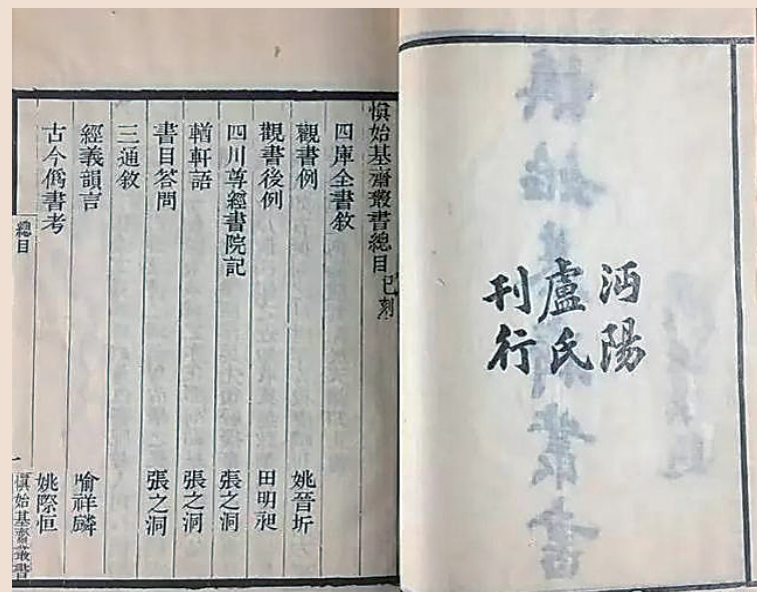 沔陽
盧氏
刊行
愼始基齋叢書總目 已刻
四庫全書敘
觀書例 姚晉圻
觀書後例 田明昶
四川尊經書院記 張之洞
輶軒語 張之洞
書目答問 張之洞
三通敘
經義韻言 喻祥麟
古今僞書考 姚際恒
總目 一 愼始基齋叢書